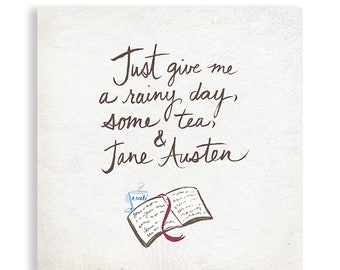 Just give me
a rainy day,
some tea,
&
Jane Austen